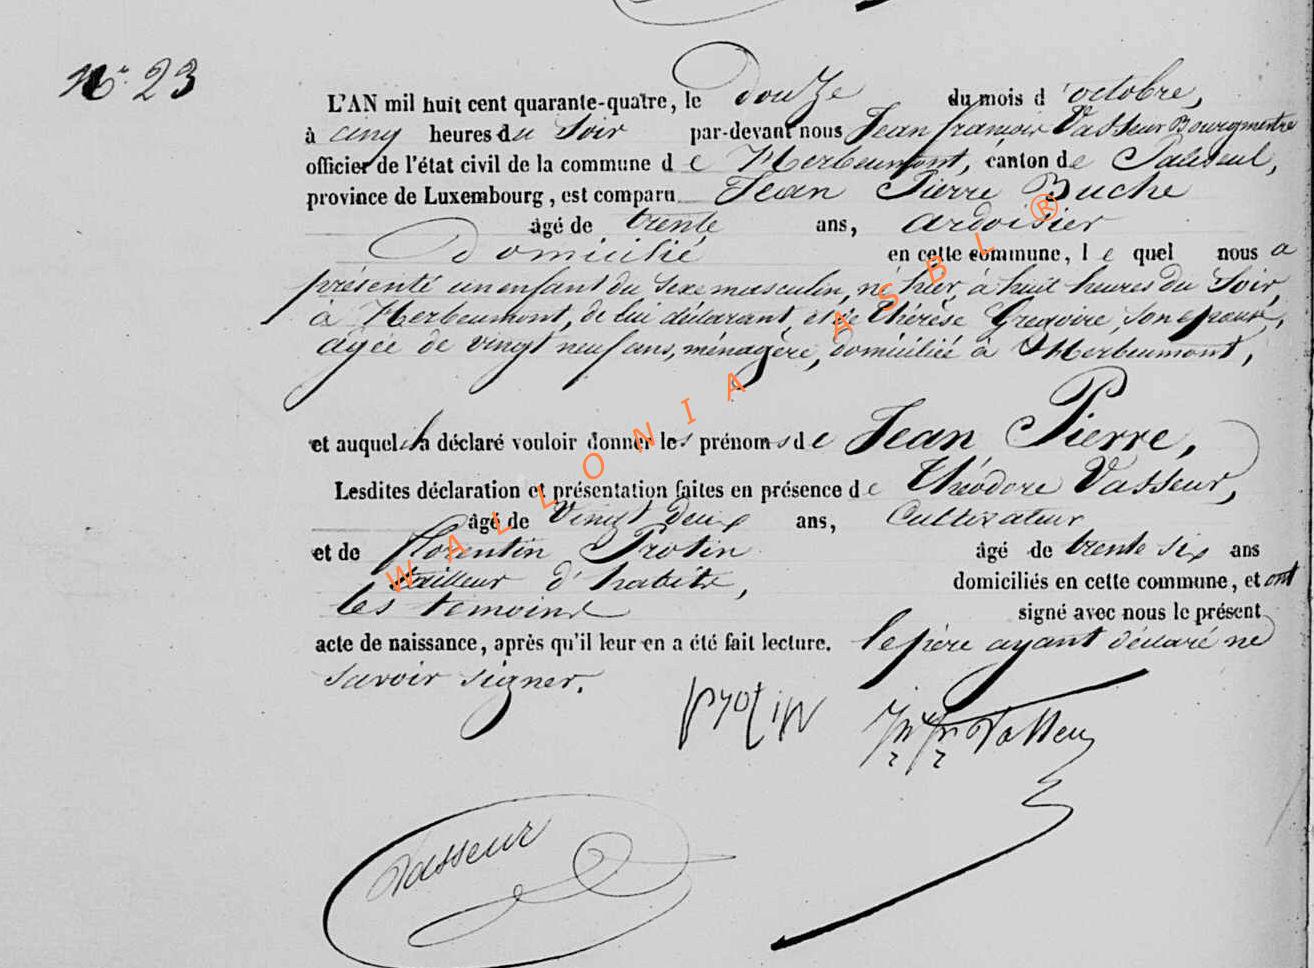 N.° 23
L'AN mil huit cent quarante-quatre, le Douze du mois d'octobre,
à cinq heures du Soir par-devant nous Jean françois Vasseur Bourgmestre
officier de l'état civil de la commune de Herbeumont, canton de Paliseul,
province de Luxembourg, est comparu Jean Pierre Buche
âgé de trente ans, ardoisier
Domicilié en cette commune, lequel nous a
présenté un enfant du sexe masculin, né hier, à huit heures du Soir,
à Herbeumont, de lui déclarant, et de Thérèse Gregoire, son epouse,
agée de vingt neuf ans, ménagère, domiciliée à Herbeumont,
et auquel il a déclaré vouloir donner les prénoms de Jean Pierre,
Lesdites déclaration et présentation faites en présence de Théodore Vasseur,
âgé de Vingt Deux ans, Cultivateur
et de florentin Protin âgé de trente six ans
tailleur d'habits, domiciliés en cette commune, et ont
les temoins signé avec nous le présent
acte de naissance, après qu'il leur en a été fait lecture. le père ayant déclaré ne
savoir signer.
protin Jn fr Vasseur
Vasseur
WALLONIA ASBL ®